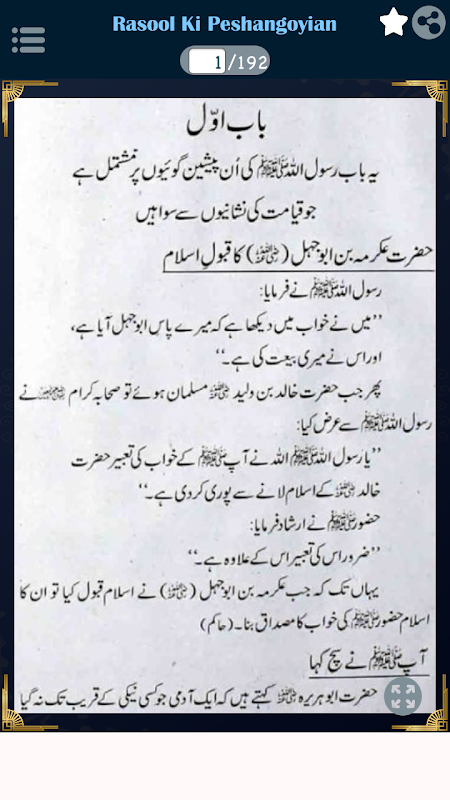 Rasool Ki Peshangoyian
1/192
باب اوّل
یہ باب رسول اللہ ﷺ کی اُن پیشین گوئیوں پر مشتمل ہے
جو قیامت کی نشانیوں سے سوا ہیں
حضرت عکرمہ بن ابوجہل (رضی اللہ عنہ) کا قبولِ اسلام
رسول اللہ ﷺ نے فرمایا:
’’میں نے خواب میں دیکھا ہے کہ میرے پاس ابوجہل آیا ہے،
اور اس نے میری بیعت کی ہے۔‘‘
پھر جب حضرت خالد بن ولید رضی اللہ عنہ مسلمان ہوئے تو صحابہ کرام رضی اللہ عنہم نے
رسول اللہ ﷺ سے عرض کیا:
’’یا رسول اللہ ﷺ اللہ نے آپ ﷺ کے خواب کی تعبیر حضرت
خالد رضی اللہ عنہ کے اسلام لانے سے پوری کر دی ہے۔‘‘
حضور ﷺ نے ارشاد فرمایا:
’’ضرور اس کی تعبیر اس کے علاوہ ہے۔‘‘
یہاں تک کہ جب عکرمہ بن ابوجہل (رضی اللہ عنہ) نے اسلام قبول کیا تو ان کا
اسلام حضور ﷺ کی خواب کا مصداق بنا۔ (حاکم)
آپ ﷺ نے سچ کہا
حضرت ابو ہریرہ رضی اللہ عنہ کہتے ہیں کہ ایک آدمی جو کسی نیکی کے قریب تک نہ گیا